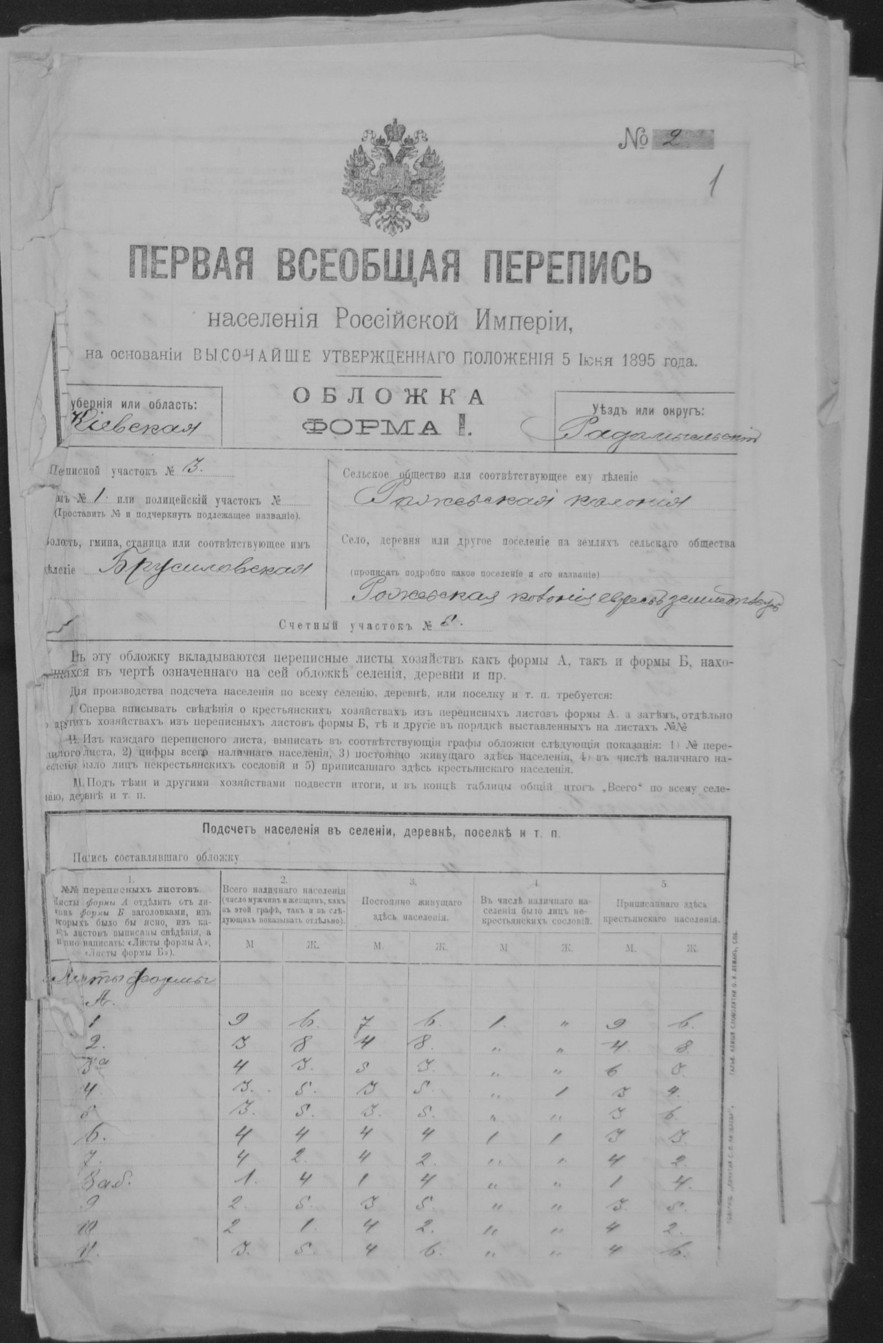 № 2
1
ПЕРВАЯ ВСЕОБЩАЯ ПЕРЕПИСЬ
населенія Россійской Имперіи,
на основаніи ВЫСОЧАЙШЕ УТВЕРЖДЕННАГО ПОЛОЖЕНІЯ 5 Іюня 1895 года.
ОБЛОЖКА
ФОРМА I.
убернія или область:
Кіевская
Уѣздъ или округъ:
Радомысльскій
Переписной участокъ № 3.
нъ № 1 или полицейскій участокъ №
(Проставить № и подчеркнуть подлежащее названіе).
олость, гмина, станица или соотвѣтствующее имъ
ѣленіе Брусиловская
Сельское общество или соотвѣтствующее ему дѣленіе
Рожевская колонія
Село, деревня или другое поселеніе на земляхъ сельскаго общества
(прописать подробно какое поселеніе и его названіе)
Рожевская колонія евреевъ земледѣльцевъ
Счетный участокъ № 5.
Въ эту обложку вкладываются переписные листы хозяйствъ какъ формы А, такъ и формы Б, нахо-
щихся въ чертѣ означеннаго на сей обложкѣ селенія, деревни и пр.
Для производства подсчета населенія по всему селенію, деревнѣ, или поселку и т. п. требуется:
I. Сперва вписывать свѣдѣнія о крестьянскихъ хозяйствахъ изъ переписныхъ листовъ формы А, а затѣмъ, отдѣльно
о другихъ хозяйствахъ изъ переписныхъ листовъ формы Б, тѣ и другіе въ порядкѣ выставленныхъ на листахъ №№
II. Изъ каждаго переписного листа, выписать въ соотвѣтствующія графы обложки слѣдующія показанія: 1) № пере-
писного листа, 2) цифры всего наличнаго населенія, 3) постоянно живущаго здѣсь населенія, 4) въ числѣ наличнаго на-
селенія было лицъ некрестьянскихъ сословій и 5) приписаннаго здѣсь крестьянскаго населенія.
III. Подъ тѣми и другими хозяйствами подвести итоги, и въ концѣ таблицы общій итогъ „Всего“ по всему селе-
нію, деревнѣ и т. п.
Подсчетъ населенія въ селеніи, деревнѣ, поселкѣ и т. п.
Подпись составлявшаго обложку
1. 2. 3. 4. 5.
№№ переписныхъ листовъ
Листы формы А отдѣлить отъ ли-
товъ формы Б заголовками, изъ
которыхъ было бы ясно, изъ ка-
кихъ листовъ выписаны свѣдѣнія, а
именно написать: «Листы формы А»,
«Листы формы Б»).
Всего наличнаго населенія
(число мужчинъ и женщинъ, какъ
въ этой графѣ, такъ и въ слѣ-
дующихъ показывать отдѣльно).
Постоянно живущаго
здѣсь населенія.
Въ числѣ наличнаго на-
селенія было лицъ не-
крестьянскихъ сословій.
Приписаннаго здѣсь
крестьянскаго населенія.
М Ж. М. Ж. М Ж. М. Ж.
Листы формы
А.
1 9 6. 7 6. 1. " 9 6.
2. 3 8 4 8. " " 4. 8.
3а 4 3. 5 3. " " 6 3
4 3. 5. 3 5. " 1 3 4.
5 3. 5. 3. 5. " " 3 6
6. 4 4 4 4 1 1 3 3.
7. 4 2. 4 2. " " 4 2
8аб. 1. 4 1 4 " " 1 4.
9 2. 5. 3 5 " " 3. 5
10 2 1. 4 2. " " 4 2.
11. 3. 5. 4 6. " " 4 6.